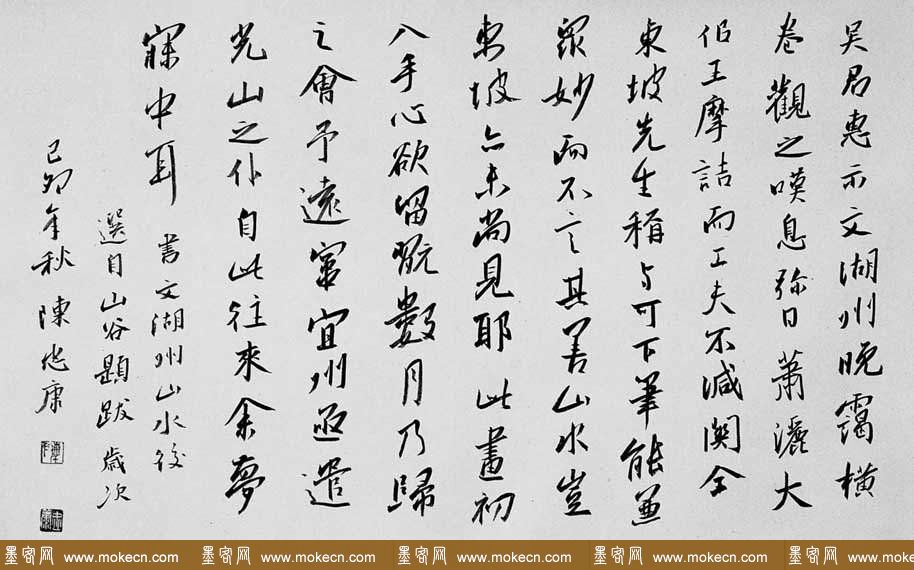 吴君惠示文湖州晚靄橫
卷觀之嘆息弥日蕭灑大
佀王摩詰而工夫不減関仝
東坡先生稱与可下筆能兼
眾妙而不言其善山水豈
東坡亦未尚見耶此畫初
入手心欲留翫數月乃歸
之會予遠竄宜州亟遣
光山之仆自此往來余夢
寐中耳 書文湖州山水後
選自山谷題跋 歲次
己卯年秋 陳忠康
墨客网 www.mokecn.com 墨客网 www.mokecn.com 墨客网 www.mokecn.com 墨客网 www.mokecn.com 墨客网 www.mokecn.com